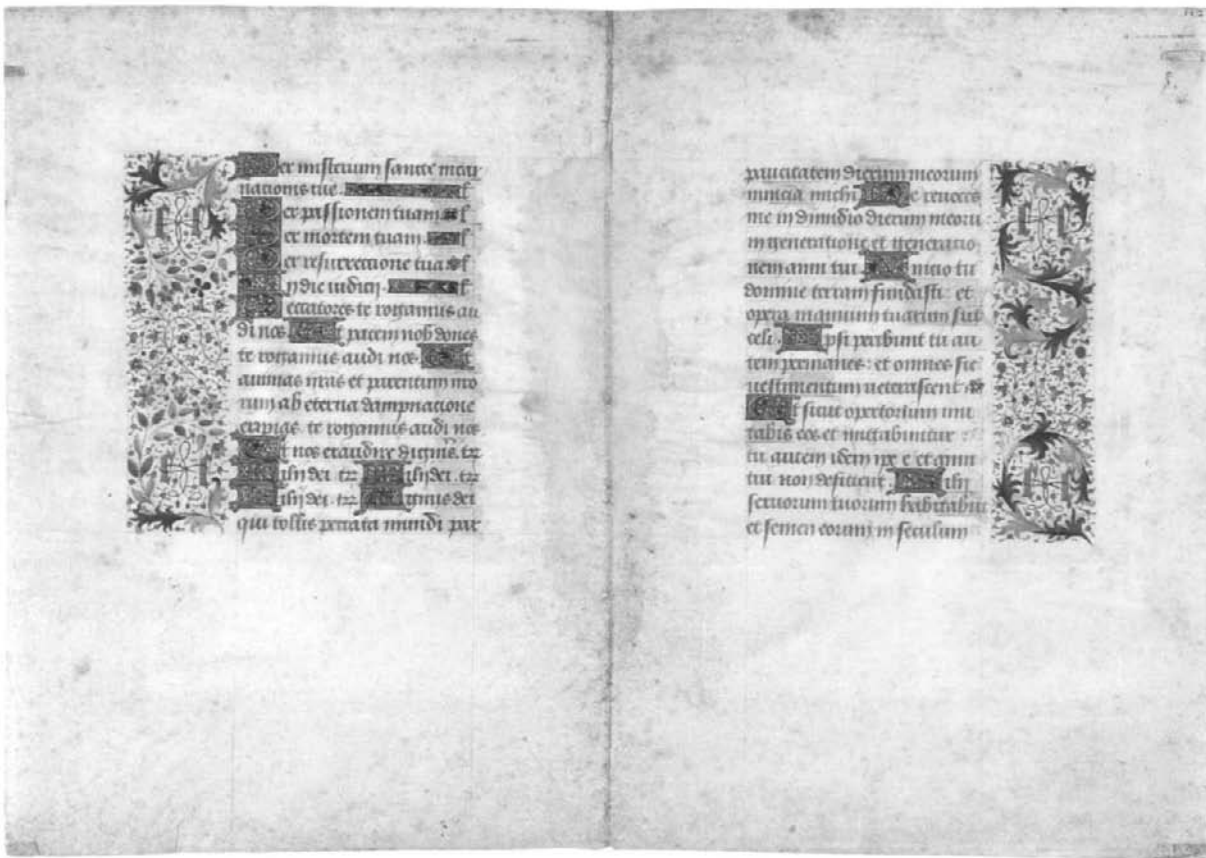 Per misterium sancte incar
nationis tue . l
Per passionem tuam l
Per mortem tuam l
Per resurrectione tua l
In die iudicij . l
Peccatores te rogamus au
di nos Ut pacem nob dones
te rogamus audi nos Ut
animas nras et parentum nro
rum ab eterna dampnacione
eripias . te rogamus audi nos .
Ut nos exaudire digneris . te
filij dei . te filij dei . te
filij dei . te Agnus dei
qui tollis peccata mundi par
paucitatem dierum meorum
nuncia michi Ne revoces
me in dimidio dierum meoru
in generatione et generatio
nem anni tui Inicio tu
domine terram fundasti : et
opera manuum tuarum sut
celi . Ipsi peribunt tu au
tem permanes : et omnes sic
vestimentum veterascent
Et sicut opertorium mu
tabis eos et mutabuntur
tu autem idem ipe e et anni
tui non deficient Filij
servorum tuorum habitabut
et semen eorum in seculum